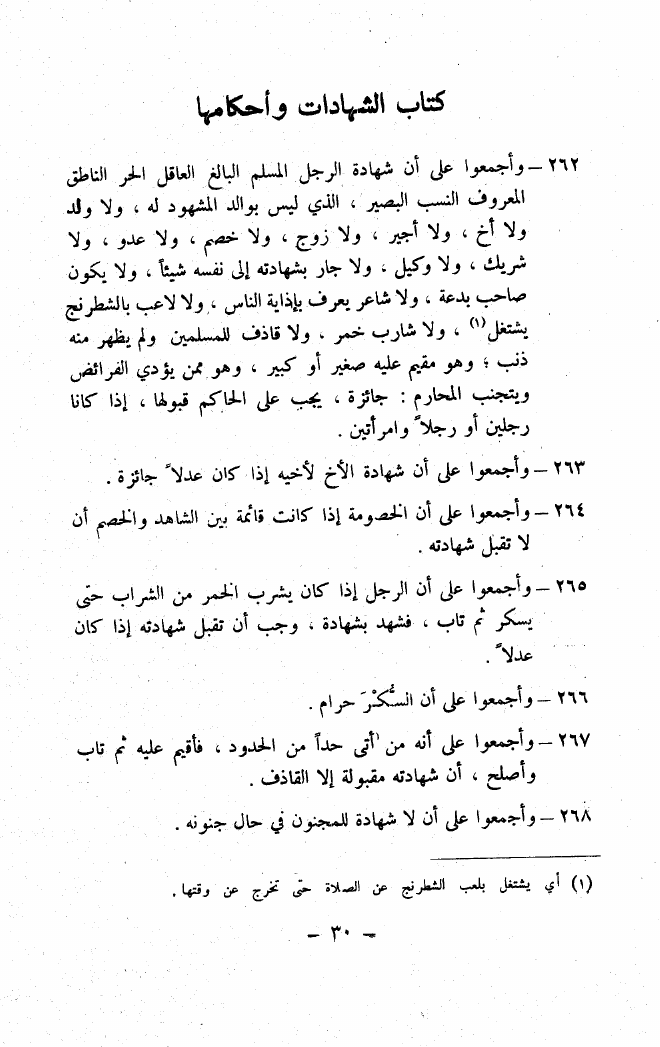 كتاب الشهادات وأحكامها
٢٦٢ – وأجمعوا على أن شهادة الرجل المسلم البالغ العاقل الحر الناطق
المعروف النسب البصير ، الذي ليس بوالد المشهود له ، ولا ولد
ولا أخ ، ولا أجير ، ولا زوج ، ولا خصم ، ولا عدو ، ولا
شريك ، ولا وكيل ، ولا جار بشهادته إلى نفسه شيئاً ، ولا يكون
صاحب بدعة ، ولا شاعر يعرف بإذاية الناس ، ولا لاعب بالشطرنج
يشتغل(١) ، ولا شارب خمر ، ولا قاذف للمسلمين ولم يظهر منه
ذنب ؛ وهو مقيم عليه صغير أو كبير ، وهو ممن يؤدي الفرائض
ويتجنب المحارم : جائزة ، يجب على الحاكم قبولها ، إذا كانا
رجلين أو رجلاً وامرأتين .
٢٦٣ – وأجمعوا على أن شهادة الأخ لأخيه إذا كان عدلاً جائزة .
٢٦٤ – وأجمعوا على أن الخصومة إذا كانت قائمة بين الشاهد والخصم أن
لا تقبل شهادته .
٢٦٥ – وأجمعوا على أن الرجل إذا كان يشرب الخمر من الشراب حتى
يسكر ثم تاب ، فشهد بشهادة ، وجب أن تقبل شهادته إذا كان
عدلاً .
٢٦٦ – وأجمعوا على أن السُّكْرَ حرام .
٢٦٧ – وأجمعوا على أنه من أتى حداً من الحدود ، فأقيم عليه ثم تاب
وأصلح ، أن شهادته مقبولة إلا القاذف .
٢٦٨ – وأجمعوا على أن لا شهادة للمجنون في حال جنونه .
(١) أي يشتغل بلعب الشطرنج عن الصلاة حتى تخرج عن وقتها .
– ٣٠ –